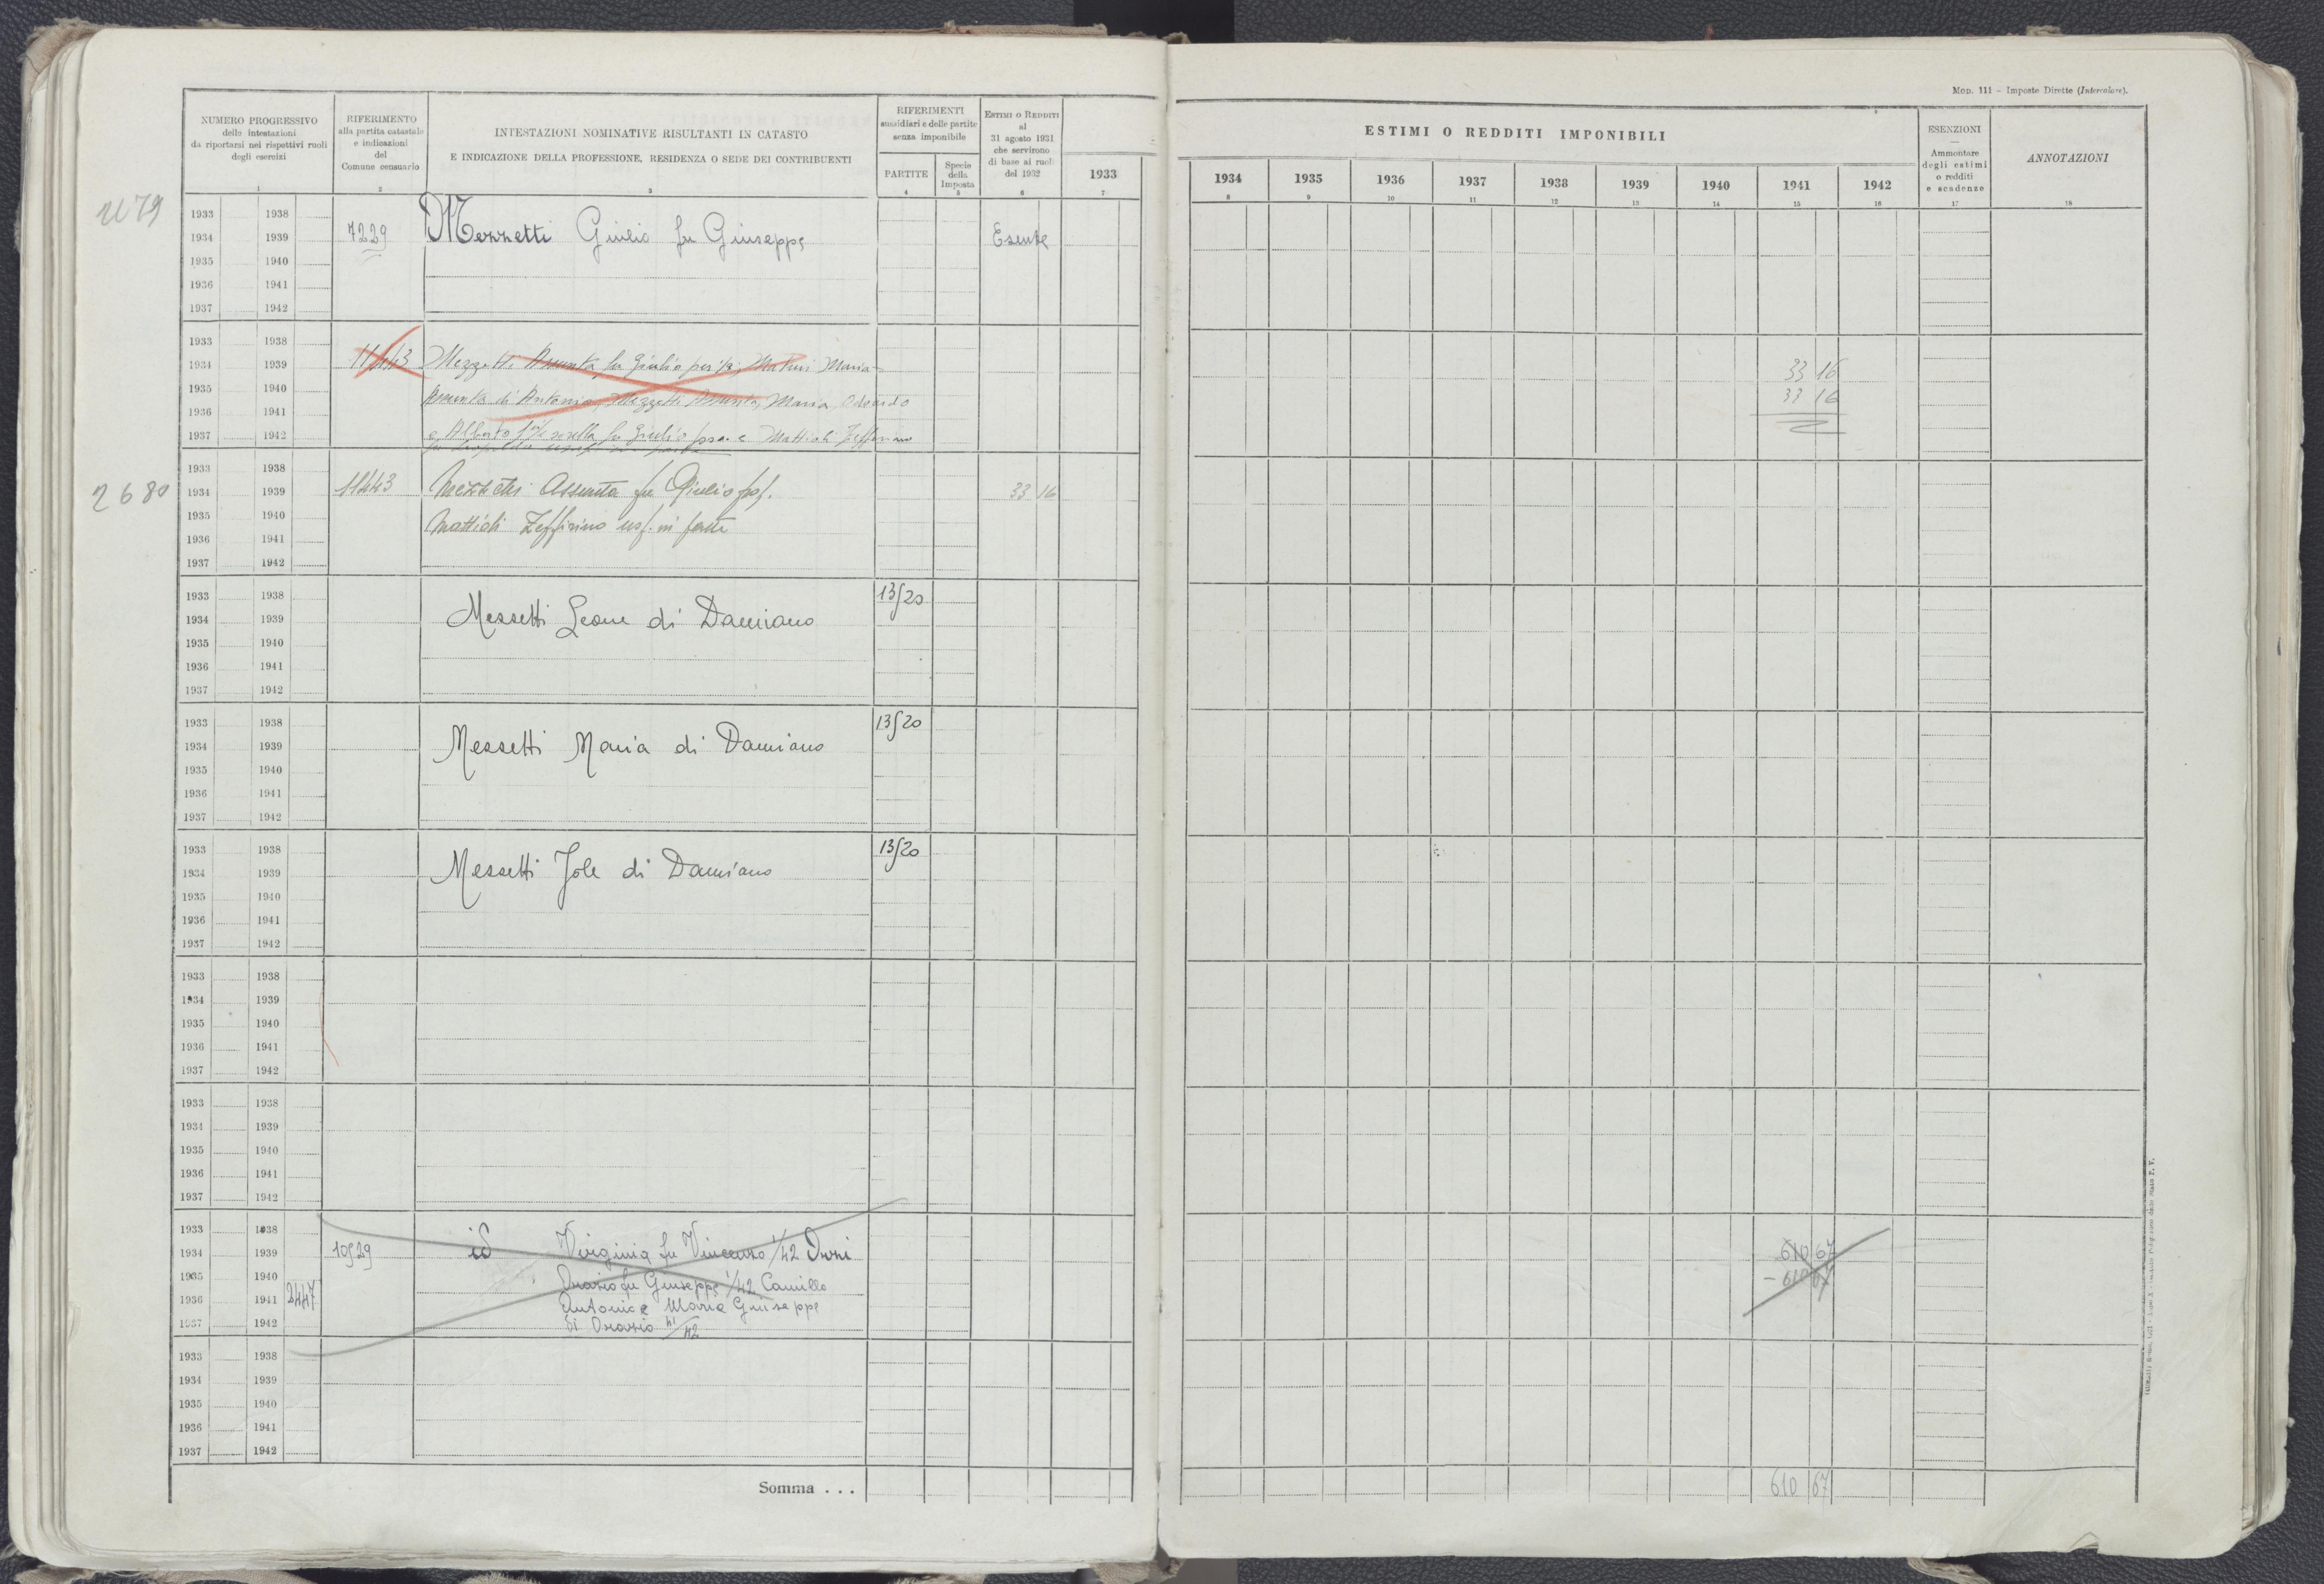 Mod. 111 - Imposte Dirette (Intercalare).
NUMERO PROGRESSIVO
delle intestazioni
da riportarsi nei rispettivi ruoli
degli esercizi
1
RIFERIMENTO
alla partita catastale
e indicazioni
del
Comune censuario
2
INTESTAZIONI NOMINATIVE RISULTANTI IN CATASTO
E INDICAZIONE DELLA PROFESSIONE, RESIDENZA O SEDE DEI CONTRIBUENTI
3
RIFERIMENTI
sussidiari e delle partite
senza imponibile
PARTITE
4
Specie
della
Imposta
5
ESTIMI O REDDITI
al
31 agosto 1931
che servirono
di base ai ruoli
del 1932
6
1933
7
ESTIMI O REDDITI IMPONIBILI
1934 1935 1936 1937 1938 1939 1940 1941 1942
8 9 10 11 12 13 14 15 16
ESENZIONI
Ammontare
degli estimi
o redditi
e scadenze
17
ANNOTAZIONI
18
1933 1938
1934 1939 7229 Mezzetti Giulio fu Giuseppe Esente
1935 1940
1936 1941
1937 1942
1933 1938
1934 1939 11443 Mezzetti Assunta fu Giulio per Maria 33 16
1935 1940 Assunta di Antonio, Mezzetti Assunta, Maria, Odoardo 33 16
1936 1941
1937 1942 e Alberto sorella fu Giulio e Mattioli Zeffirino
1933 1938
2680 1934 1939 11443 Mezzetti Assunta fu Giulio 33 16
1935 1940 Mattioli Zeffirino usf. in parte
1936 1941
1937 1942
1933 1938 13520
1934 1939 Messetti Leone di Damiano
1935 1940
1936 1941
1937 1942
1933 1938 13520
1934 1939 Messetti Maria di Damiano
1935 1940
1936 1941
1937 1942
1933 1938 13520
1934 1939 Messetti Jole di Damiano
1935 1940
1936 1941
1937 1942
1933 1938
1934 1939
1935 1940
1936 1941
1937 1942
1933 1938
1934 1939
1935 1940
1936 1941
1937 1942
1933 1938
1934 1939 10529 id Virginia fu Vincenzo 1/42 610 67
1935 1940 Orazio fu Giuseppe 1/42 Camillo - 610 67
1936 1941 2447 Antonio e Maria Giuseppe
1937 1942 di Orazio 41/42
1933 1938
1934 1939
1935 1940
1936 1941
1937 1942
Somma . . . 610 67